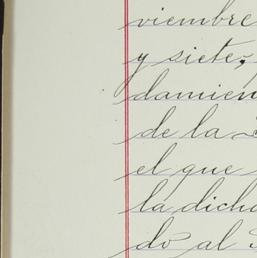 viembre
y siete,
damien
de la
el que
la dicho
do al